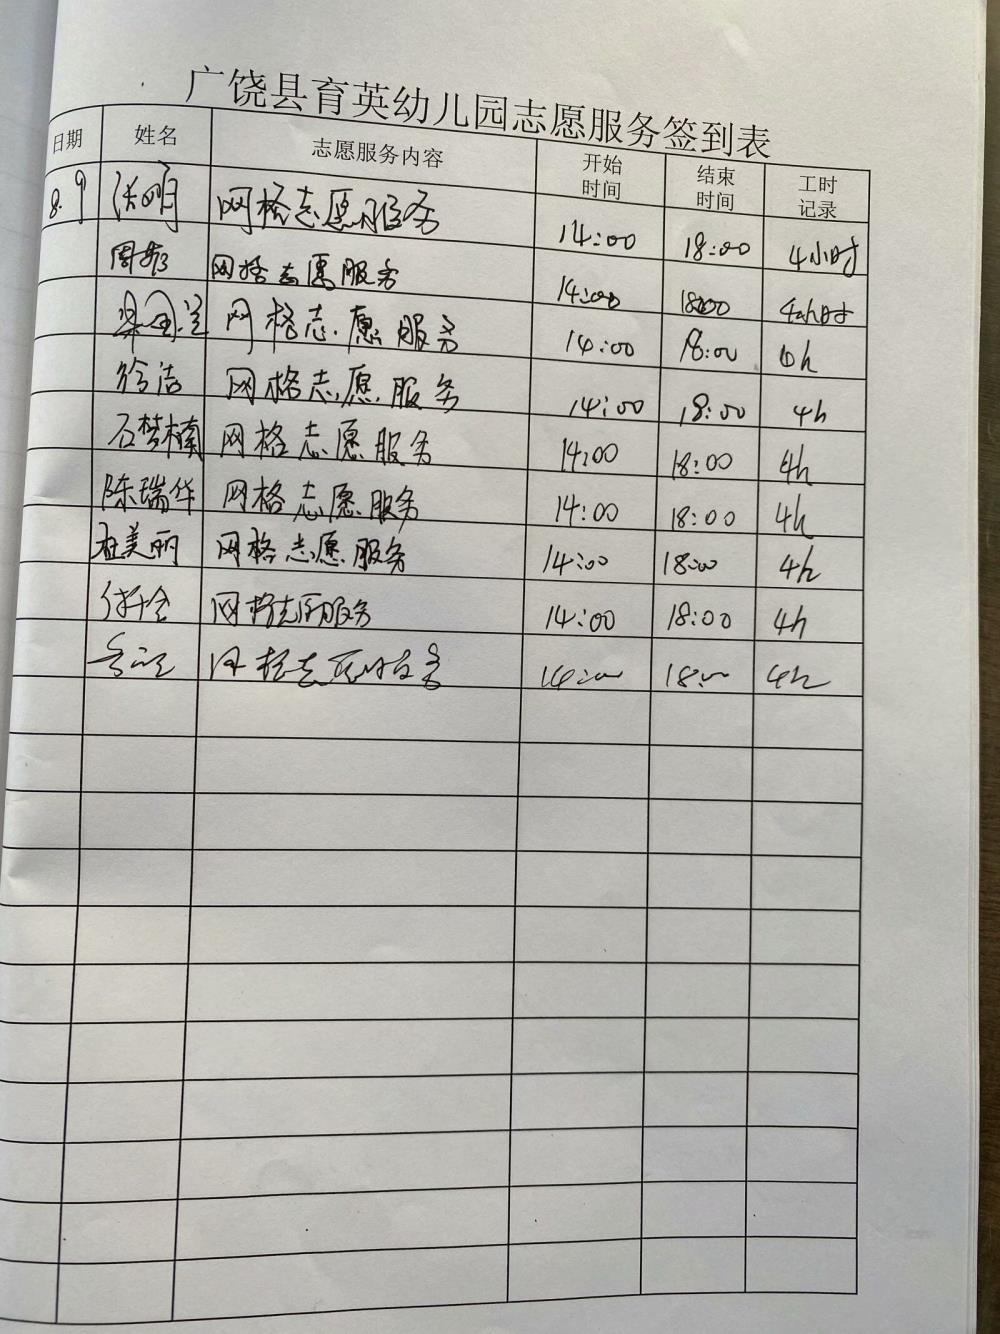 广饶县育英幼儿园志愿服务签到表
日期 姓名 志愿服务内容 开始时间 结束时间 工时记录
8.9 网格志愿服务 14:00 18:00 4小时
网格志愿服务 14:00 18:00 4小时
网格志愿服务 14:00 18:00 h
徐洁 网格志愿服务 14:00 18:00 4h
石梦楠 网格志愿服务 14:00 18:00 4h
陈瑞华 网格志愿服务 14:00 18:00 4h
杜美丽 网格志愿服务 14:00 18:00 4h
网格志愿服务 14:00 18:00 4h
网格志愿服务 14:00 18:00 4h